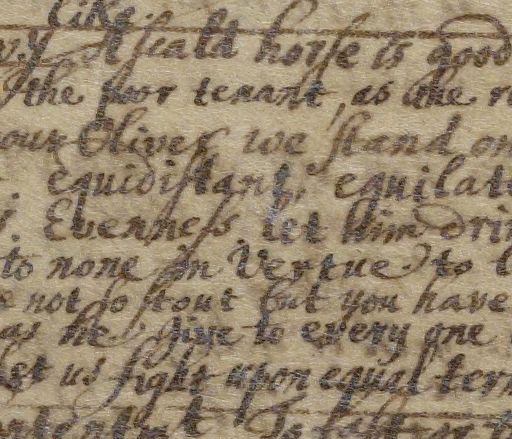 like.
A scald horse is good
the poor tenant, as the
Oliver we stand
equidistant, equilat
Evenness let him dri
to none in Vertue to
not so stout but you have
as he. give to every one
let us fight upon equal ter